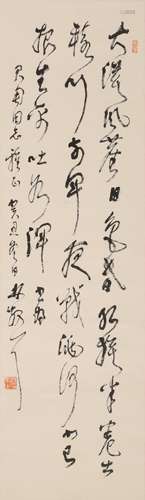 大漠風塵日色昏紅旗半卷出
轅門前軍夜戰洮河北已
報生擒吐谷渾
同志雅正 癸丑冬日 林散